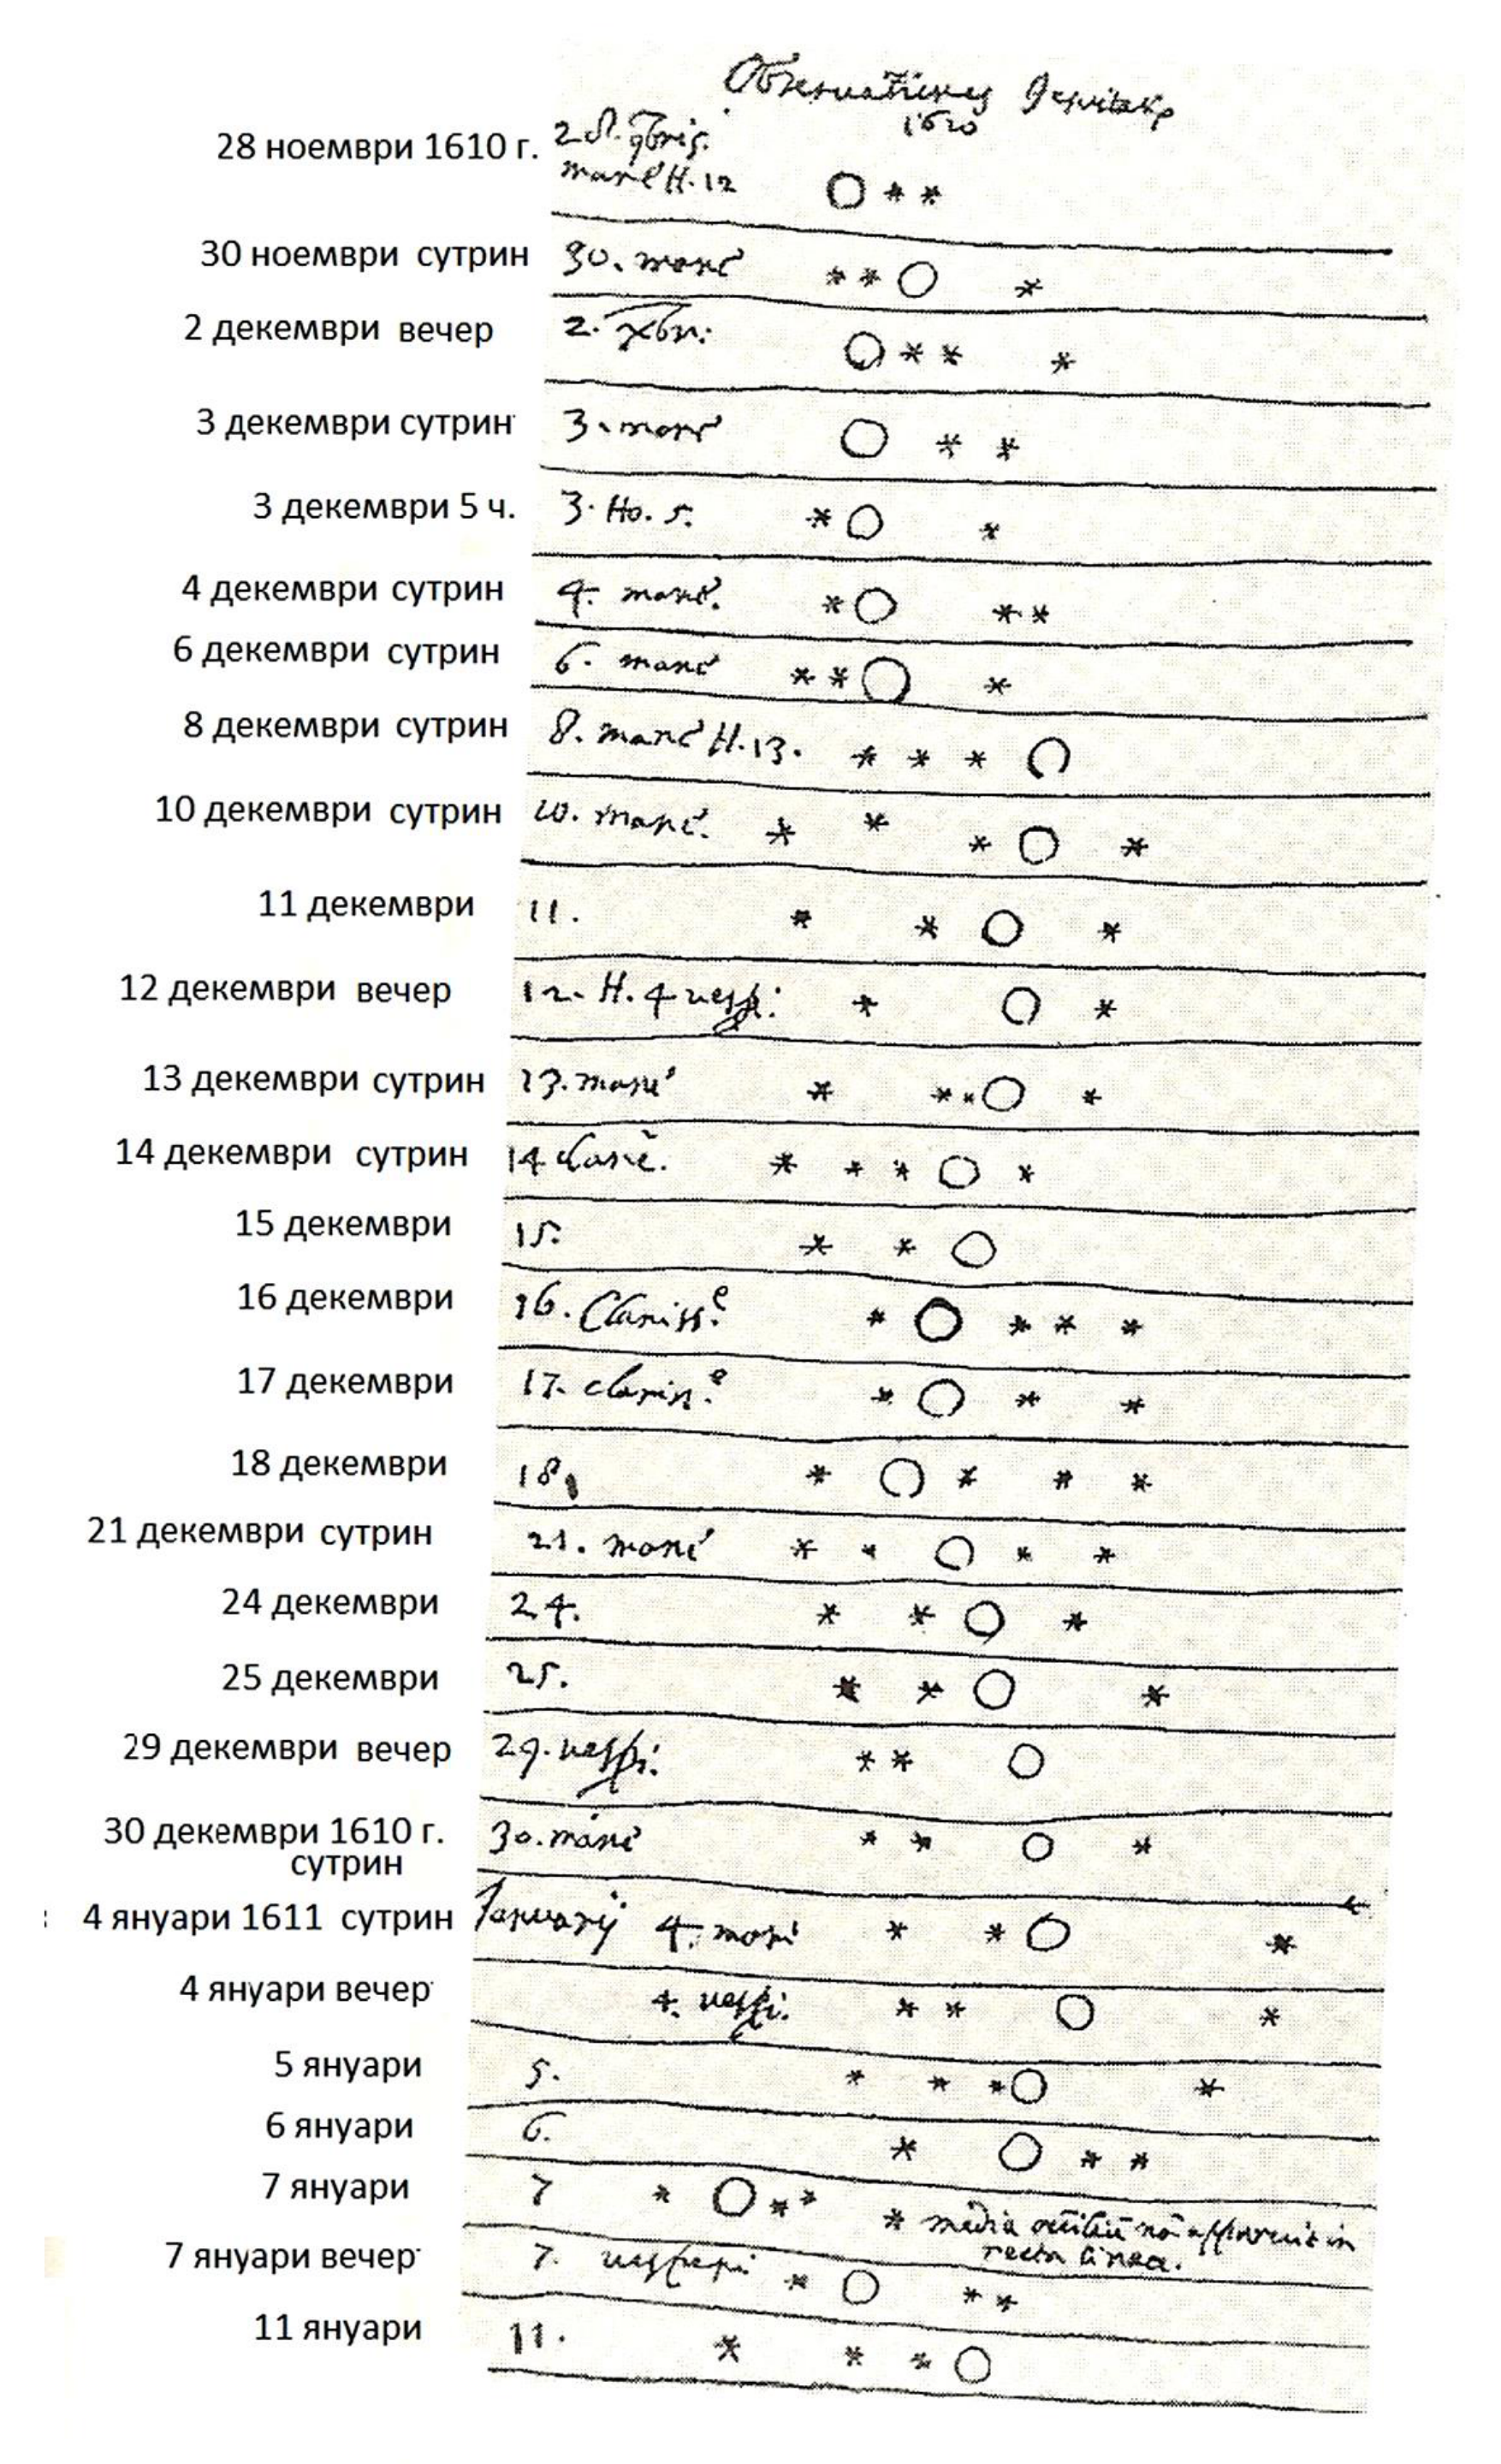 Observationes
1620
28 ноември 1610 г. 28.
mane H. 12
30 ноември сутрин 30. mane
2 декември вечер 2. Xbr:
3 декември сутрин 3. mane
3 декември 5 ч. 3. Ho. 5.
4 декември сутрин 4. mane.
6 декември сутрин 6. mane
8 декември сутрин 8. mane H. 13.
10 декември сутрин 10. mane.
11 декември 11.
12 декември вечер 12. H. 4 vesp:
13 декември сутрин 13. mane
14 декември сутрин 14
15 декември 15.
16 декември 16. Clariss.e
17 декември 17. clariss.e
18 декември 18
21 декември сутрин 21. mane
24 декември 24.
25 декември 25.
29 декември вечер 29. vesp:
30 декември 1610 г. 30. mane
сутрин
4 януари 1611 сутрин January 4. mane
4 януари вечер 4. vesp:
5 януари 5.
6 януари 6.
7 януари 7 * media non apparuit in
recta linea.
7 януари вечер 7. vesperi
11 януари 11.